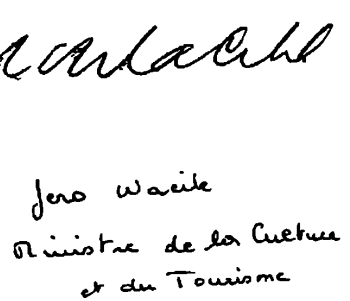 Jero Wacik
Ministre de la Culture
et du Tourisme